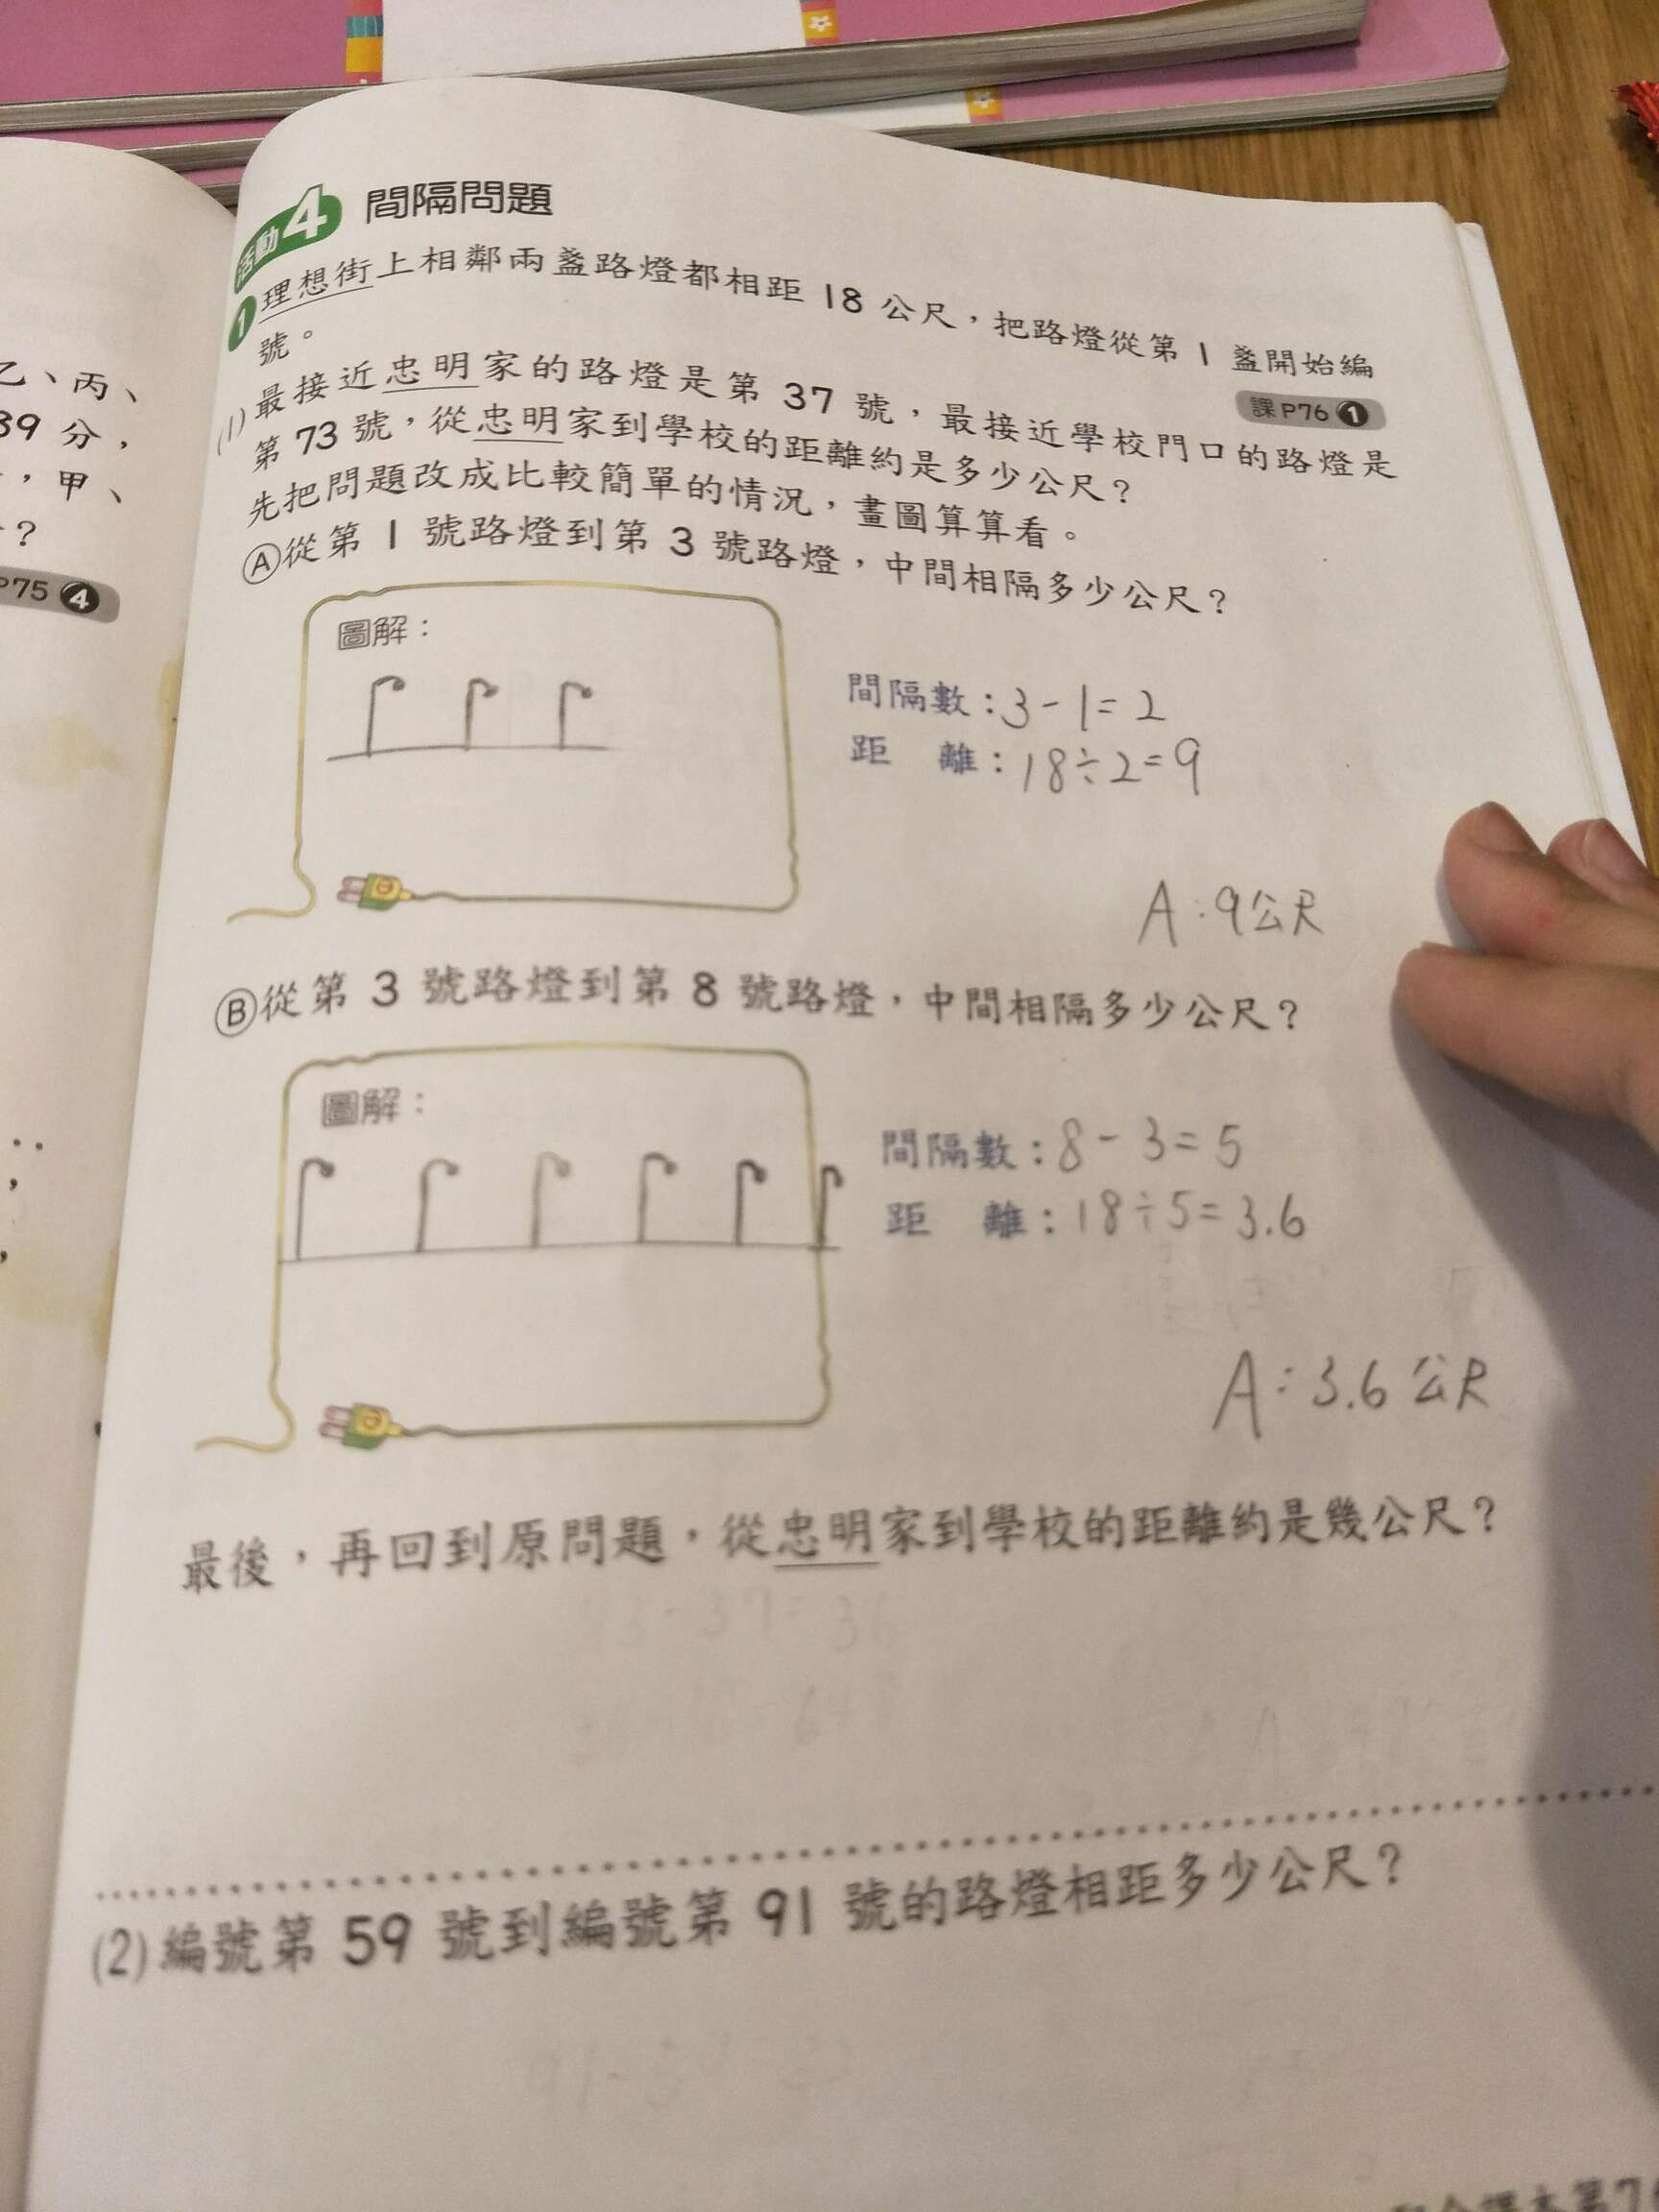 乙、丙、
89 分，
，甲、
？
P75 4
活動4 間隔問題
1 理想街上相鄰兩盞路燈都相距 18 公尺，把路燈從第 1 盞開始編
號。
課P76 1
(1)最接近忠明家的路燈是第 37 號，最接近學校門口的路燈是
第 73 號，從忠明家到學校的距離約是多少公尺？
先把問題改成比較簡單的情況，畫圖算算看。
Ⓐ從第 1 號路燈到第 3 號路燈，中間相隔多少公尺？
圖解：
間隔數：3-1=2
距 離：18÷2=9
A:9公尺
Ⓑ從第 3 號路燈到第 8 號路燈，中間相隔多少公尺？
圖解：
間隔數：8-3=5
距 離：18÷5=3.6
A:3.6公尺
最後，再回到原問題，從忠明家到學校的距離約是幾公尺？
73-37=36
(2)編號第 59 號到編號第 91 號的路燈相距多少公尺？